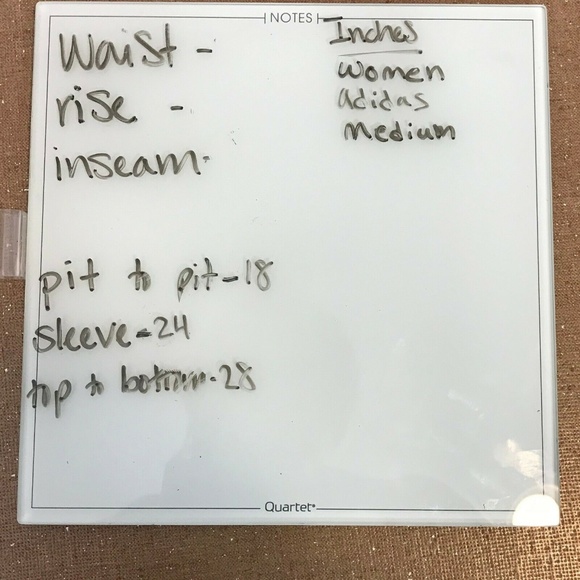 NOTES
Waist -
rise -
inseam-
Inches
women
adidas
medium
pit to pit-18
sleeve-24
top to bottom-28
Quartet®